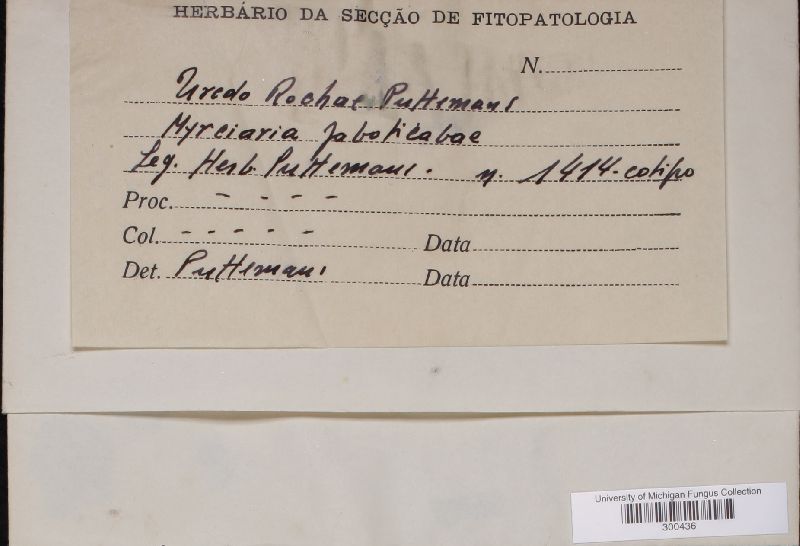 HERBÁRIO DA SECÇÃO DE FITOPATOLOGIA
N.
Uredo Rochae Puttemans
Myrciaria Jaboticabae
Leg. Herb. Puttemans. n. 1414-cotipo
Proc. - - - -
Col. - - - - - Data
Det. Puttemans Data
University of Michigan Fungus Collection
300436